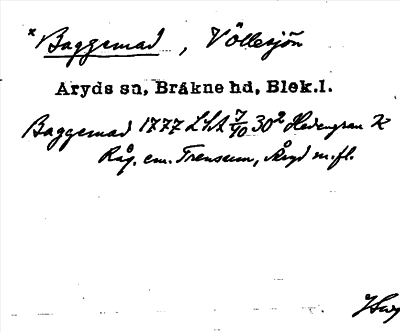 * Baggemad, Völlesjön
Aryds sn, Bräkne hd, Blek.l.
Baggemad 1777 LSA 7/40 30² Hedengran K
Råg. em. Trensum, Åryd m.fl.